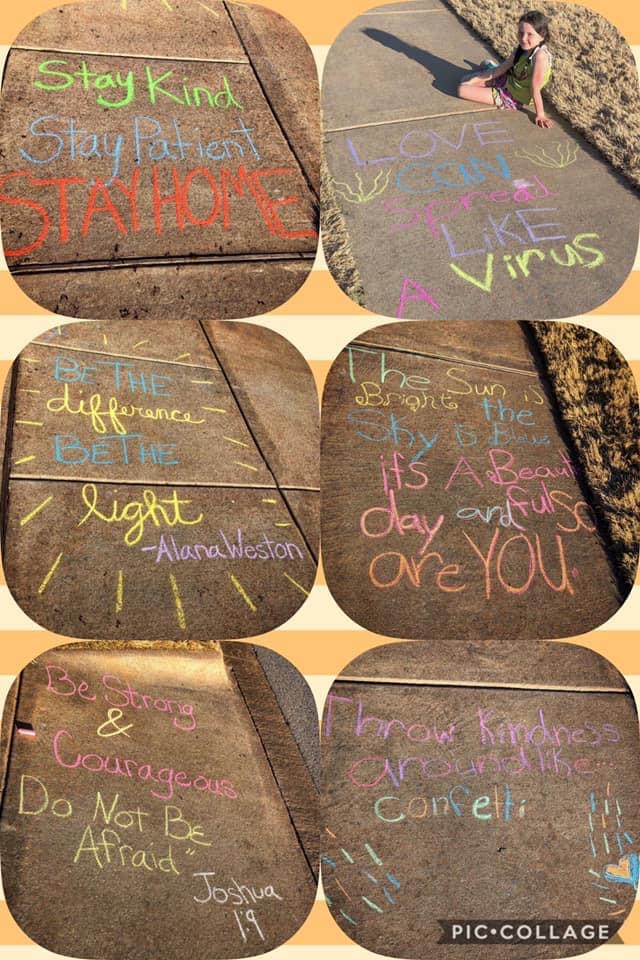 Stay Kind
Stay Patient
STAY HOME
LOVE
CAN
Spread
LIKE
A Virus
BE THE
difference
BE THE
light
-Alana Weston
The Sun is
Bright the
Sky is Blue
it's A Beauti
day and ful So
are YOU.
Be Strong
&
Courageous
Do Not Be
Afraid"
Joshua
1:9
Throw Kindness
around like...
confetti
PIC•COLLAGE